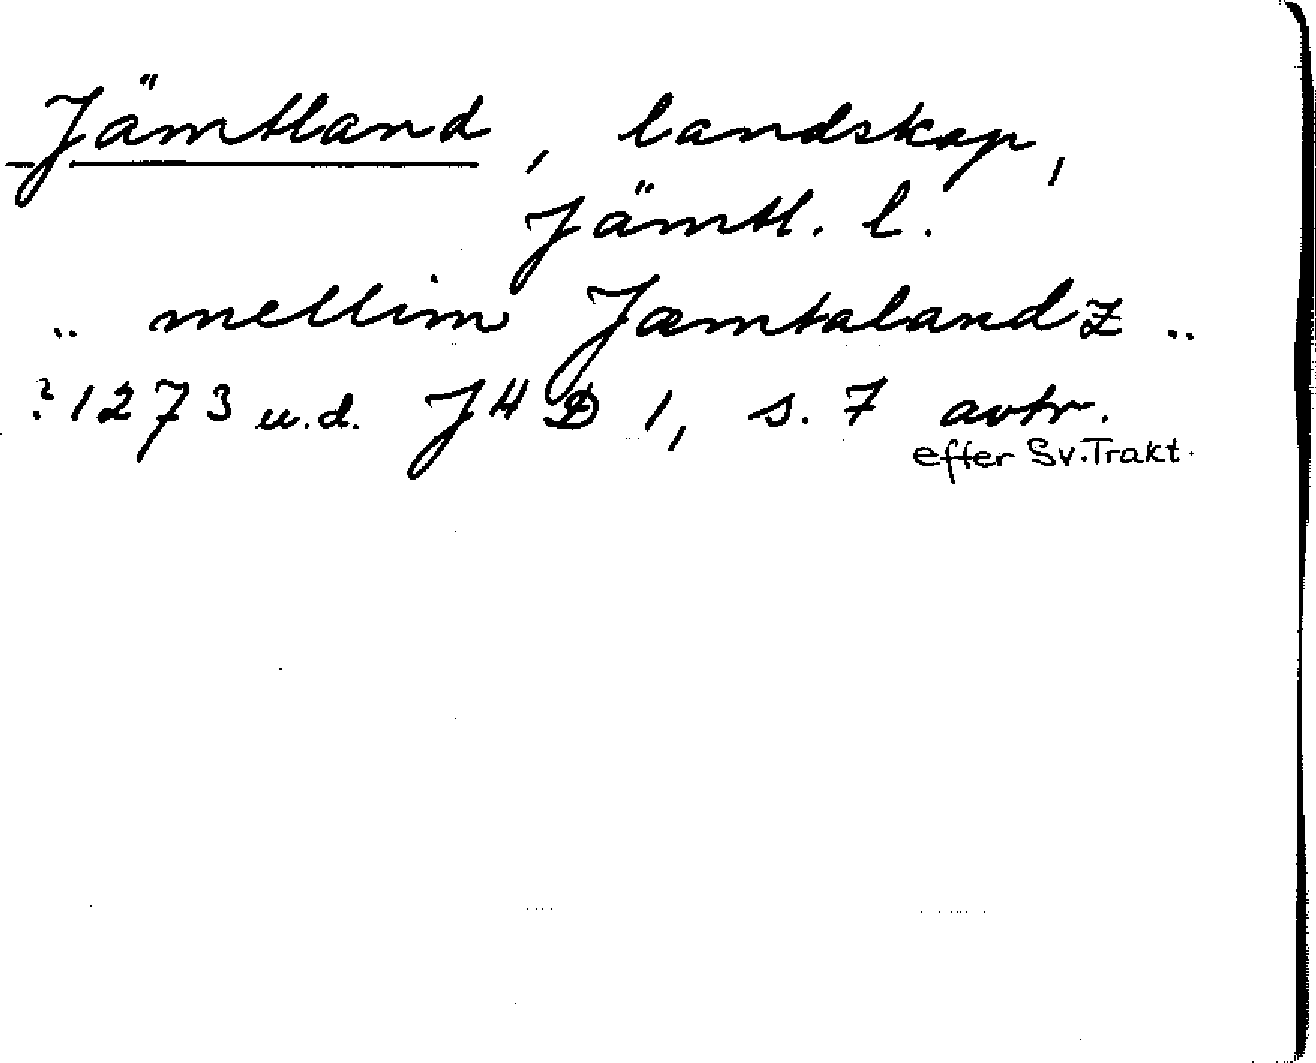 Jämtland, landskap,
Jämtl. l.
.. mellim Jæmtalandz ..
?1273 u.d. JHD 1, s. 7 avtr.
efter Sv. Trakt.